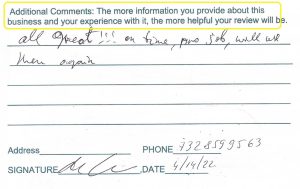 Additional Comments: The more information you provide about this
business and your experience with it, the more helpful your review will be.
all great!!! on time, pro job, will use
them again
Address
PHONE 7328599563
SIGNATURE DATE 4/14/22